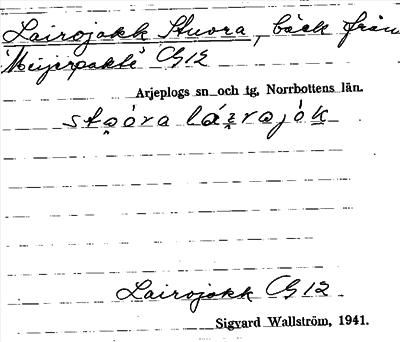 Lairojokk Stuora, bäck från
"Meijerpakte" CG12
Arjeplogs sn och tg, Norrbottens län.
Lairojokk CG 12
Sigvard Wallström, 1941.